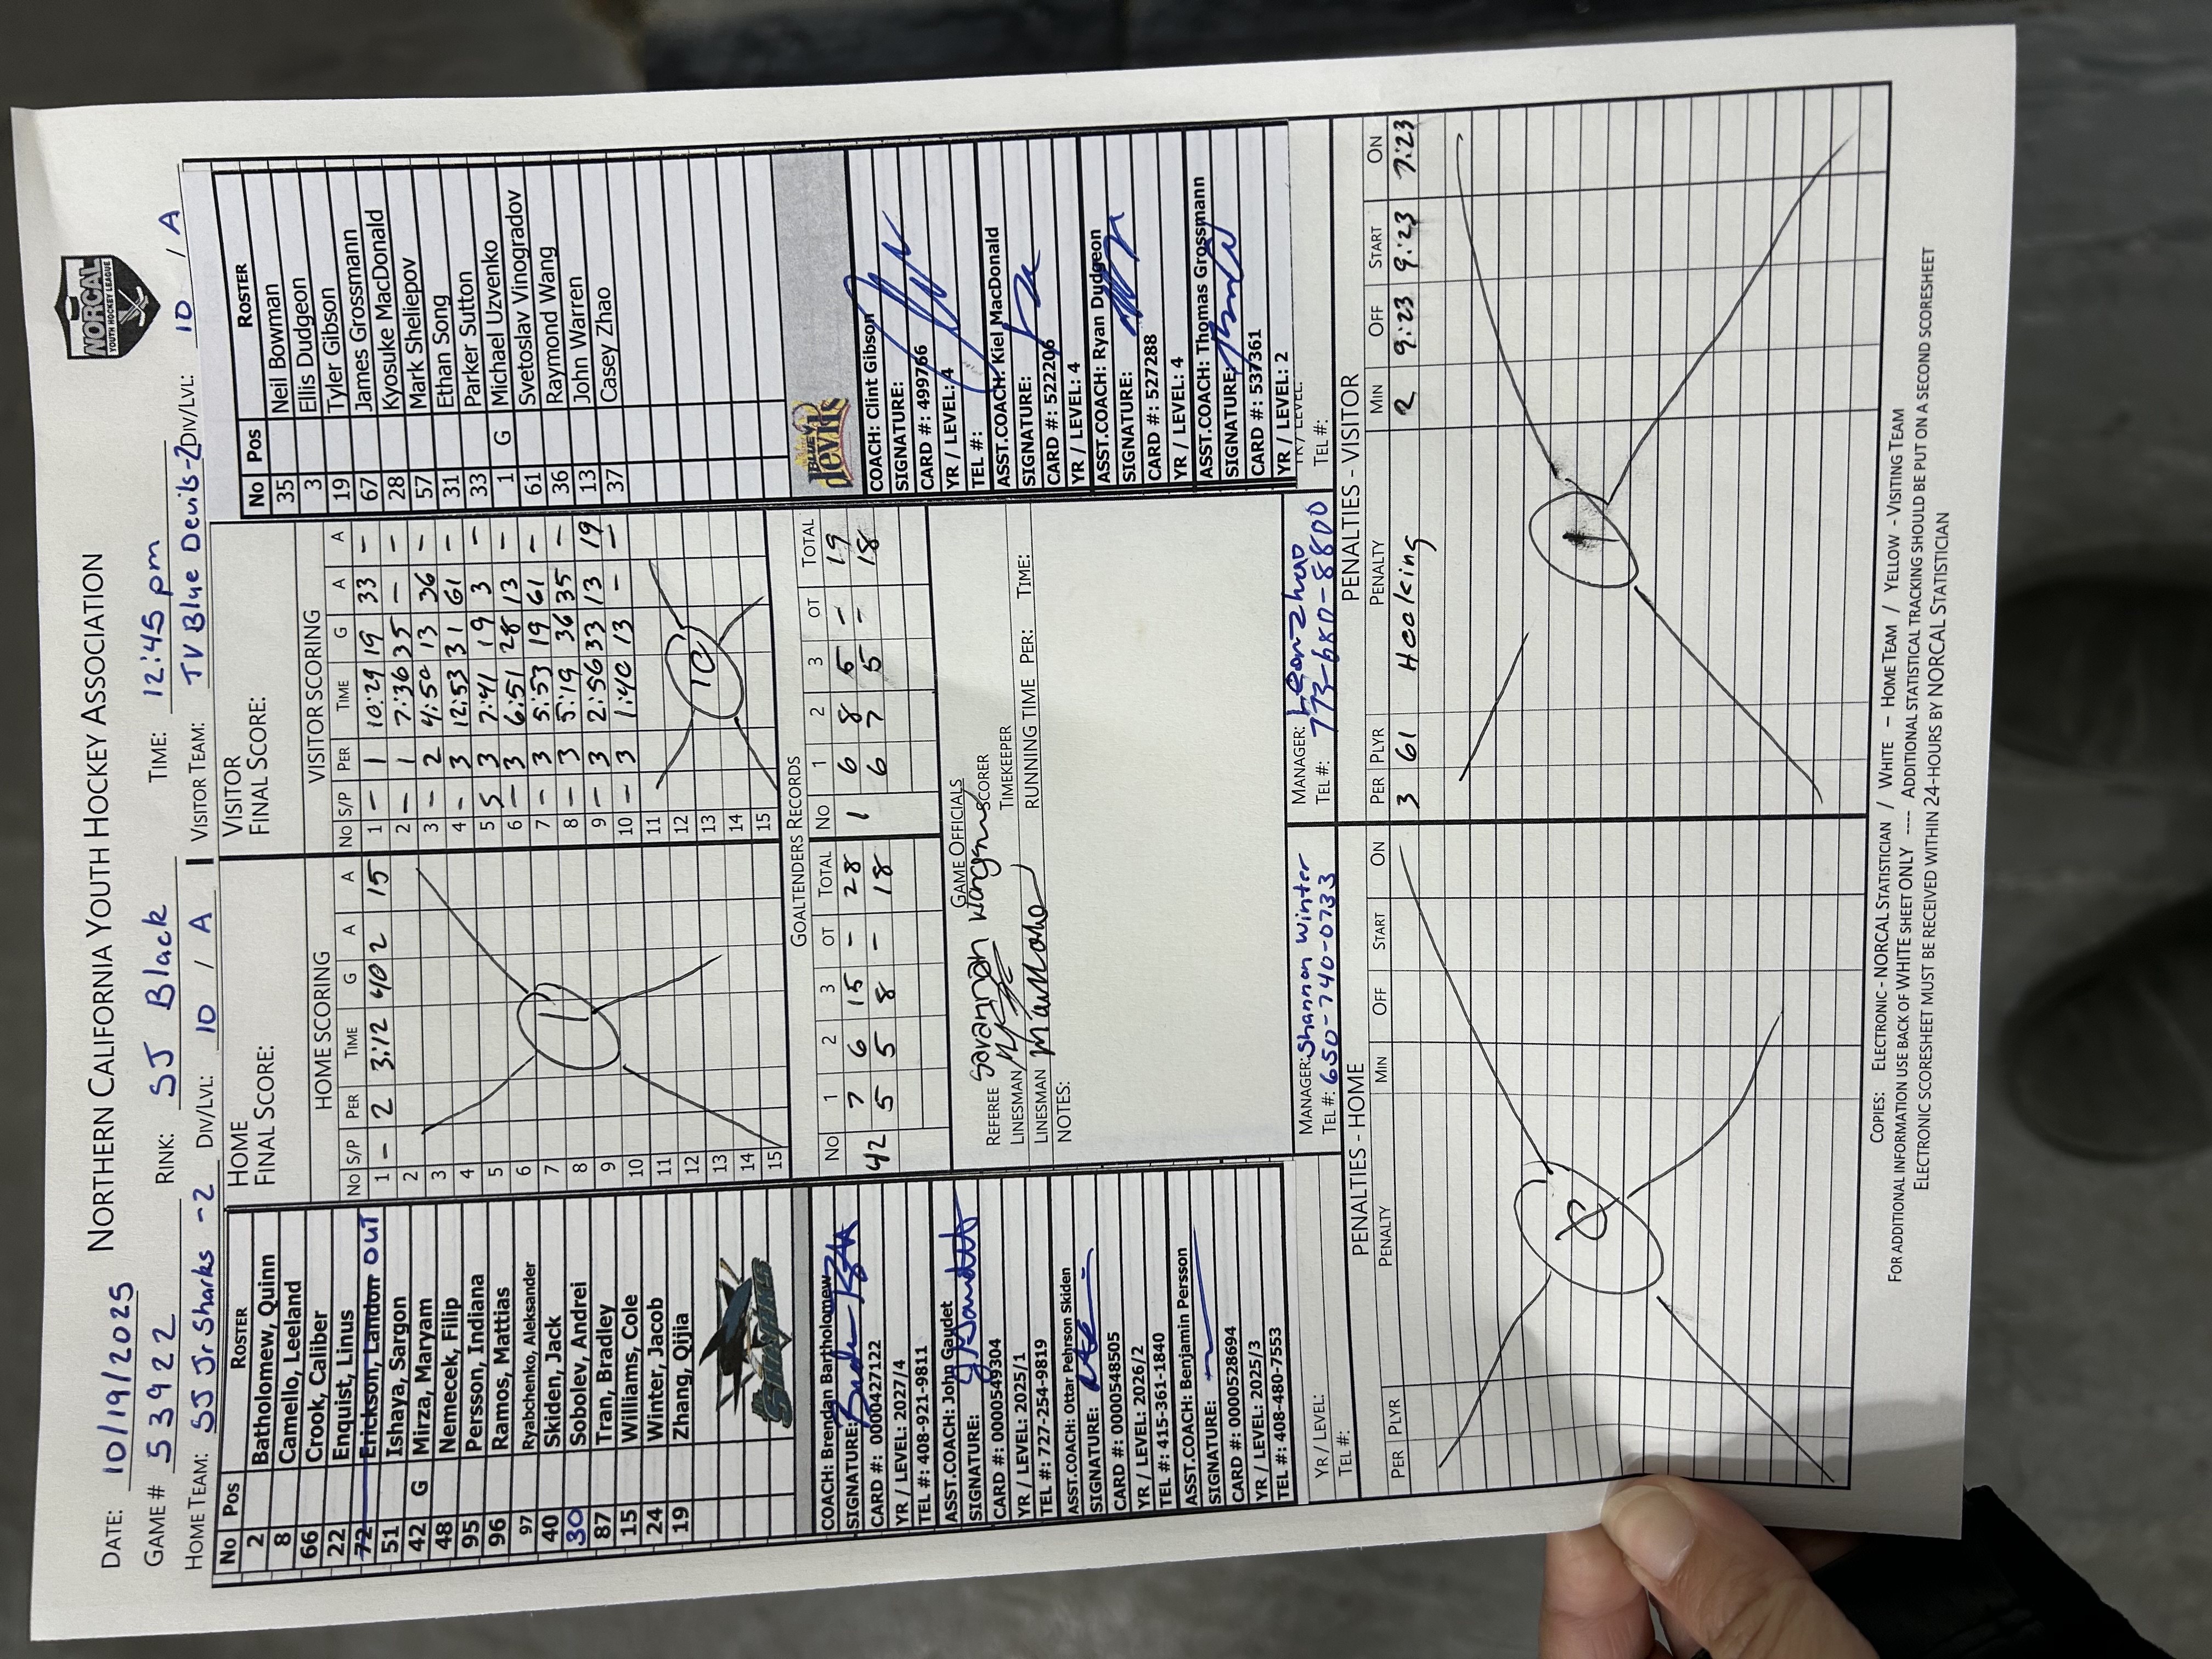 NORTHERN CALIFORNIA YOUTH HOCKEY ASSOCIATION
NORCAL
YOUTH HOCKEY LEAGUE
DATE: 10/19/2025
GAME # 5392 2 RINK: SJ Black TIME: 12:45 pm
HOME TEAM: SJ Jr Sharks -2 DIV/LVL: 10 / A VISITOR TEAM: TV Blue Devils-2 DIV/LVL: 10 / A
No Pos ROSTER
2 Batholomew, Quinn
8 Camello, Leeland
66 Crook, Caliber
22 Enquist, Linus
72 Erickson, Landon OUT
51 Ishaya, Sargon
42 G Mirza, Maryam
48 Nemecek, Filip
95 Persson, Indiana
96 Ramos, Mattias
97 Ryabchenko, Aleksander
40 Skiden, Jack
30 Sobolev, Andrei
87 Tran, Bradley
15 Williams, Cole
24 Winter, Jacob
19 Zhang, Qijia
SHARKS
COACH: Brendan Bartholomew
SIGNATURE:
CARD #: 0000427122
YR / LEVEL: 2027/4
TEL #: 408-921-9811
ASST.COACH: John Gaudet
SIGNATURE:
CARD #: 0000549304
YR / LEVEL: 2025/1
TEL #: 727-254-9819
ASST.COACH: Ottar Pehrson Skiden
SIGNATURE:
CARD #: 0000548505
YR / LEVEL: 2026/2
TEL #: 415-361-1840
ASST.COACH: Benjamin Persson
SIGNATURE:
CARD #: 0000528694
YR / LEVEL: 2025/3
TEL #: 408-480-7553
YR / LEVEL:
TEL #:
HOME
FINAL SCORE:
HOME SCORING
No S/P PER TIME G A A
1 - 2 3:12 40 2 15
2
3
4
5
6
7
8
9
10
11
12
13
14
15
1
VISITOR
FINAL SCORE:
VISITOR SCORING
No S/P PER TIME G A A
1 - 1 10:29 19 33 -
2 - 1 7:36 35 - -
3 - 2 4:50 13 36 -
4 - 3 12:53 31 61 -
5 S 3 7:41 19 3 -
6 - 3 6:51 28 13 -
7 - 3 5:53 19 61 -
8 - 3 5:19 36 35 -
9 - 3 2:56 33 13 19
10 - 3 1:40 13 - -
11
12
13
14
15
10
GOALTENDERS RECORDS
No 1 2 3 OT TOTAL No 1 2 3 OT TOTAL
42 7 6 15 - 28 1 6 8 5 - 19
5 5 8 - 18 6 7 5 - 18
GAME OFFICIALS
REFEREE Savannah SCORER
LINESMAN TIMEKEEPER
LINESMAN RUNNING TIME PER: TIME:
NOTES:
MANAGER: Shannon Winter
TEL #: 650-740-0733
MANAGER: Leon Zhao
TEL #: 773-680-8800
No Pos ROSTER
35 Neil Bowman
3 Ellis Dudgeon
19 Tyler Gibson
67 James Grossmann
28 Kyosuke MacDonald
57 Mark Sheliepov
31 Ethan Song
33 Parker Sutton
1 G Michael Uzvenko
61 Svetoslav Vinogradov
36 Raymond Wang
13 John Warren
37 Casey Zhao
BLUE devils
COACH: Clint Gibson
SIGNATURE:
CARD #: 499766
YR / LEVEL: 4
TEL #:
ASST.COACH: Kiel MacDonald
SIGNATURE:
CARD #: 522206
YR / LEVEL: 4
ASST.COACH: Ryan Dudgeon
SIGNATURE:
CARD #: 527288
YR / LEVEL: 4
ASST.COACH: Thomas Grossmann
SIGNATURE:
CARD #: 537361
YR / LEVEL: 2
YR / LEVEL:
TEL #:
PENALTIES - HOME
PER PLYR PENALTY MIN OFF START ON
0
PENALTIES - VISITOR
PER PLYR PENALTY MIN OFF START ON
3 61 Hooking 2 9:23 9:23 7:23
1
COPIES: ELECTRONIC - NORCAL STATISTICIAN / WHITE – HOME TEAM / YELLOW - VISITING TEAM
FOR ADDITIONAL INFORMATION USE BACK OF WHITE SHEET ONLY ---- ADDITIONAL STATISTICAL TRACKING SHOULD BE PUT ON A SECOND SCORESHEET
ELECTRONIC SCORESHEET MUST BE RECEIVED WITHIN 24-HOURS BY NORCAL STATISTICIAN